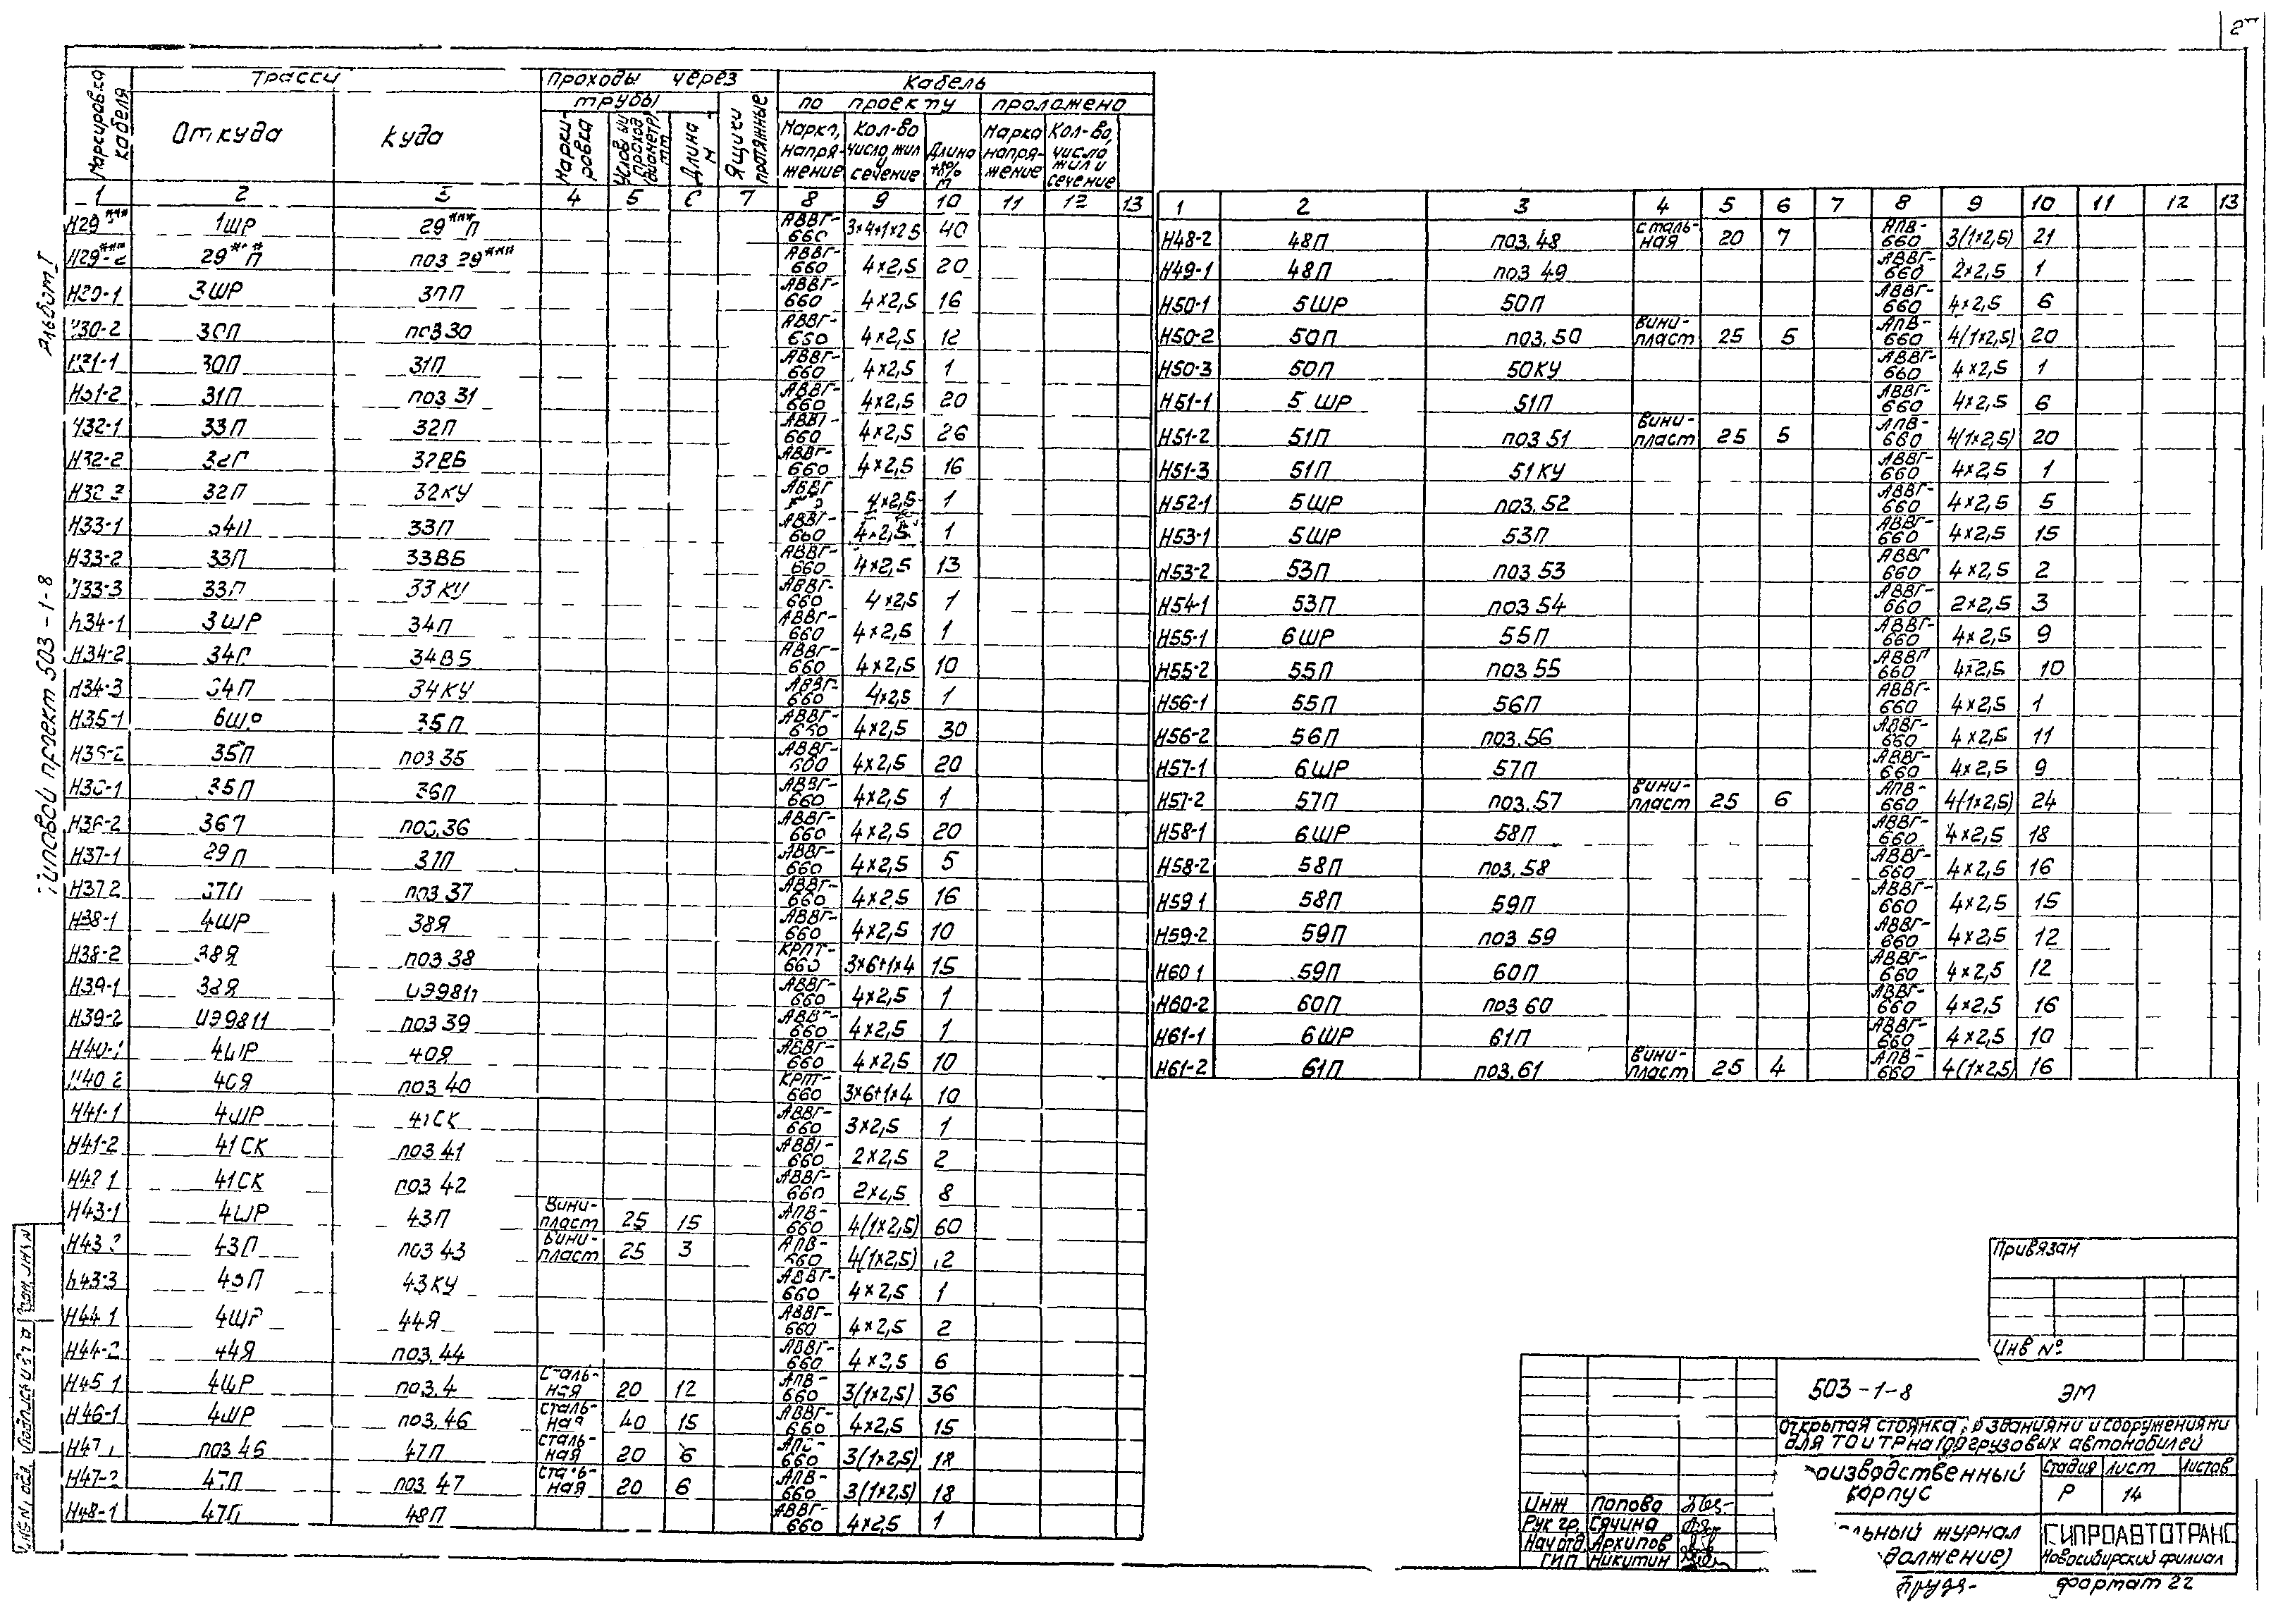 Альбом I
Типовой проект 503-1-8
Маркировка кабеля | Трассы | Проходы через | Кабель
Откуда | Куда | трубы | Ящики протяжные | по проекту | проложено
Марки-ровка | Условный проход (диаметр) мм | Длина м | Марка, напря-жение | Кол-во число жил и сечение | Длина м | Марка напря-жение | Кол-во, число жил и сечение
1 2 3 4 5 6 7 8 9 10 11 12 13
Н29*** 1ШР 29***П АВВГ-660 3×4+1×2,5 40
Н29***-2 29***П поз 29*** АВВГ-660 4×2,5 20
3ШР 30П АВВГ-660 4×2,5 16
Н30-2 30П поз30 АВВГ-660 4×2,5 12
Н31-1 30П 31П АВВГ-660 4×2,5 1
Н31-2 31П поз 31 АВВГ-660 4×2,5 20
Н32-1 33П 32П АВВГ-660 4×2,5 26
Н32-2 32П 32ВБ АВВГ-660 4×2,5 16
Н32-3 32П 32КУ АВВГ 4×2,5 1
Н33-1 34П 33П АВВГ-660 4×2,5 1
Н33-2 33П 33ВБ АВВГ-660 4×2,5 13
Н33-3 33П 33КУ АВВГ-660 4×2,5 1
Н34-1 3ШР 34П АВВГ-660 4×2,5 1
Н34-2 34П 34ВБ АВВГ-660 4×2,5 10
Н34-3 34П 34КУ АВВГ-660 4×2,5 1
Н35-1 6ШР 35П АВВГ-660 4×2,5 30
Н35-2 35П поз 35 АВВГ-660 4×2,5 20
Н36-1 35П 36П АВВГ-660 4×2,5 1
Н36-2 36П поз.36 АВВГ-660 4×2,5 20
Н37-1 29П 37П АВВГ-660 4×2,5 5
Н37 2 37П поз 37 АВВГ-660 4×2,5 16
Н38-1 4ШР 38Я АВВГ-660 4×2,5 10
Н38-2 38Я поз 38 КРПТ-660 3×6+1×4 15
Н39-1 38Я ИЭ9811 АВВГ-660 4×2,5 1
Н39-2 ИЭ9811 поз 39 АВВГ-660 4×2,5 1
Н40-1 4ШР 40Я АВВГ-660 4×2,5 10
Н40 2 40Я поз 40 КРПТ-660 3×6+1×4 10
Н41-1 4ШР 41СК АВВГ-660 3×2,5 1
Н41-2 41СК поз 41 АВВГ-660 2×2,5 2
Н42 1 41СК поз 42 АВВГ-660 2×2,5 8
Н43-1 4ШР 43П Вини-пласт 25 15 АПВ-660 4(1×2,5) 60
Н43 2 43П поз 43 Вини-пласт 25 3 АПВ-660 4(1×2,5) 2
Н43-3 43П 43КУ АВВГ-660 4×2,5 1
Н44 1 4ШР 44Я АВВГ-660 4×2,5 2
Н44-2 44Я поз.44 АВВГ-660 4×2,5 6
Н45 1 4ШР поз.4 Сталь-ная 20 12 АПВ-660 3(1×2,5) 36
Н46-1 4ШР поз.46 Сталь-ная 40 15 АВВГ-660 4×2,5 15
Н47 1 поз 46 47П Сталь-ная 20 6 АПВ-660 3(1×2,5) 18
Н47-2 47П поз 47 Сталь-ная 20 6 АПВ-660 3(1×2,5) 18
Н48-1 47П 48П АВВГ-660 4×2,5 1
1 2 3 4 5 6 7 8 9 10 11 12 13
Н48-2 48П поз.48 Сталь-ная 20 7 АПВ-660 3(1×2,5) 21
Н49-1 48П поз 49 АВВГ-660 2×2,5 1
Н50-1 5ШР 50П АВВГ-660 4×2,5 6
Н50-2 50П поз.50 Вини-пласт 25 5 АПВ-660 4(1×2,5) 20
Н50-3 50П 50КУ АВВГ-660 4×2,5 1
Н51-1 5 ШР 51П АВВГ-660 4×2,5 6
Н51-2 51П поз 51 Вини-пласт 25 5 АПВ-660 4(1×2,5) 20
Н51-3 51П 51КУ АВВГ-660 4×2,5 1
Н52-1 5ШР поз.52 АВВГ-660 4×2,5 5
Н53-1 5ШР 53П АВВГ-660 4×2,5 15
Н53-2 53П поз 53 АВВГ 660 4×2,5 2
Н54-1 53П поз 54 АВВГ-660 2×2,5 3
Н55-1 6ШР 55П АВВГ-660 4×2,5 9
Н55-2 55П поз 55 АВВГ 660 4×2,5 10
Н56-1 55П 56П АВВГ-660 4×2,5 1
Н56-2 56П поз.56 АВВГ-660 4×2,5 11
Н57-1 6ШР 57П АВВГ-660 4×2,5 9
Н57-2 57П поз.57 Вини-пласт 25 6 АПВ-660 4(1×2,5) 24
Н58-1 6ШР 58П АВВГ-660 4×2,5 18
Н58-2 58П поз.58 АВВГ-660 4×2,5 16
Н59 1 58П 59П АВВГ-660 4×2,5 15
Н59-2 59П поз 59 АВВГ-660 4×2,5 12
Н60 1 59П 60П АВВГ-660 4×2,5 12
Н60-2 60П поз 60 АВВГ-660 4×2,5 16
Н61-1 6ШР 61П АВВГ-660 4×2,5 10
Н61-2 61П поз.61 Вини-пласт 25 4 АПВ-660 4(1×2,5) 16
Привязан
Инв №
503-1-8 ЭМ
Открытая стоянка, зданиями и сооружениями
для ТО и ТР на грузовых автомобилей
корпус
Стадия Лист Листов
Р 14
журнал
ГИПРОАВТОТРАНС
Новосибирский филиал
Инж Попова
Рук гр. Сячина
Нач отд Архипов
ГИП Никитин
Формат 22